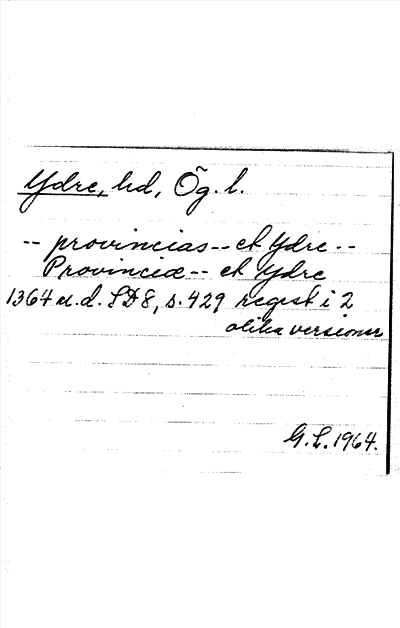 Ydre, hd, Ög. l.
-- provincias -- et Ydre --
Provinciæ -- et Ydre
1364 u.d. SD 8, s. 429 regest i 2
olika versioner
G.L. 1964.